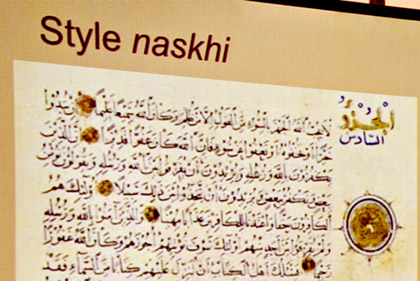 Style naskhi
الجزؤ
السادس
لا يحب الله الجهر بالسوء من القول إلا من ظلم وكان الله سميعا عليما إن تبدوا
خيرا أو تخفوه أو تعفوا عن سوء فإن الله كان عفوا قديرا إن الذين
يكفرون بالله ورسله ويريدون أن يفرقوا بين الله ورسله ويقولون نؤمن
ببعض ونكفر ببعض ويريدون أن يتخذوا بين ذلك سبيلا أولئك هم
الكافرون حقا وأعتدنا للكافرين عذابا مهينا والذين آمنوا بالله ورسله
ولم يفرقوا بين أحد منهم أولئك سوف نؤتيهم أجورهم وكان الله غفورا
رحيما يسئلك أهل الكتاب أن تنزل عليهم كتابا من السماء فقد